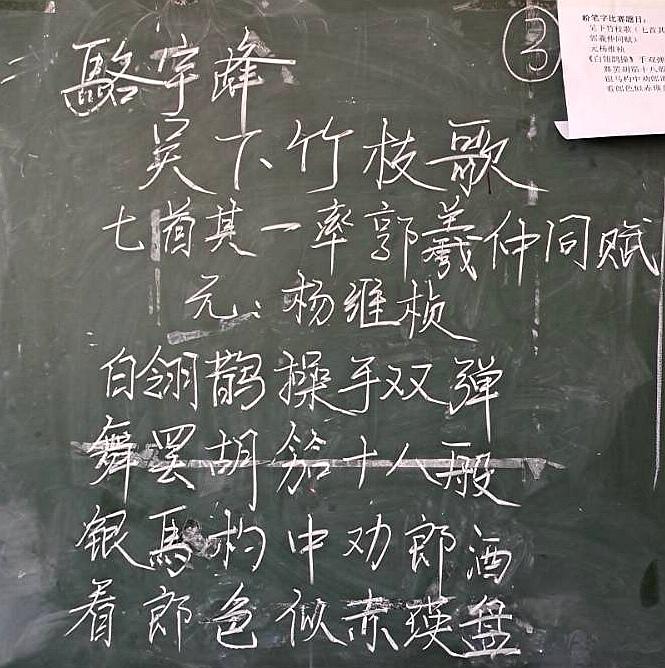 駱宇峰
③
吴下竹枝歌
七首其一率郭羲仲同赋
元:杨维桢
白翎鹊操手双弹
舞罢胡笳十八般
银馬杓中劝郎酒
看郎色似赤瑛盘
粉笔字比赛题目:
吴下竹枝歌(七首其
郭羲仲同赋)
元杨维桢
《白翎鹊操》手双弹
舞罢胡笳十八般
银马杓中劝郎酒
看郎色似赤瑛